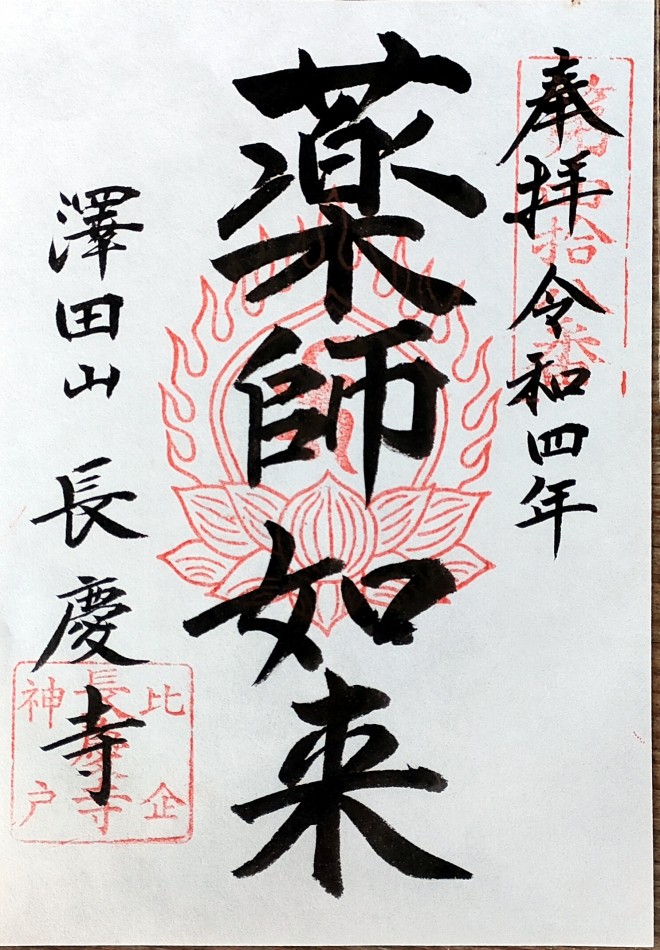 奉拝 令和四年
薬師如来
澤田山 長慶寺
比企
長慶寺
神戸